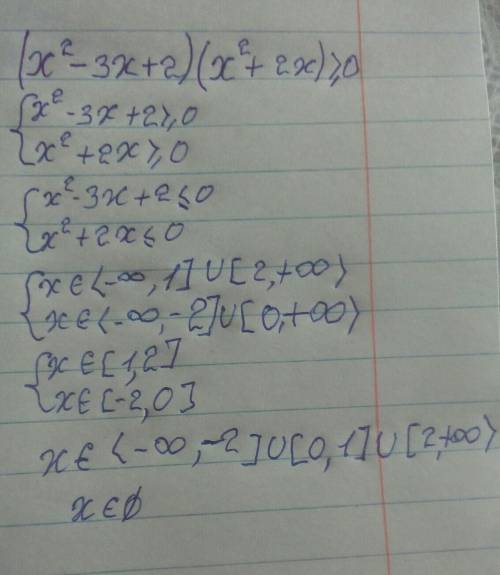 (x²-3x+2)(x²+2x)≥0
{x²-3x+2≥0
x²+2x≥0
{x²-3x+2≤0
x²+2x≤0
{x∈⟨-∞,1]∪[2,+∞⟩
x∈⟨-∞,-2]∪[0,+∞⟩
{x∈[1,2]
x∈[-2,0]
x∈⟨-∞,-2]∪[0,1]∪[2,+∞⟩
x∈∅